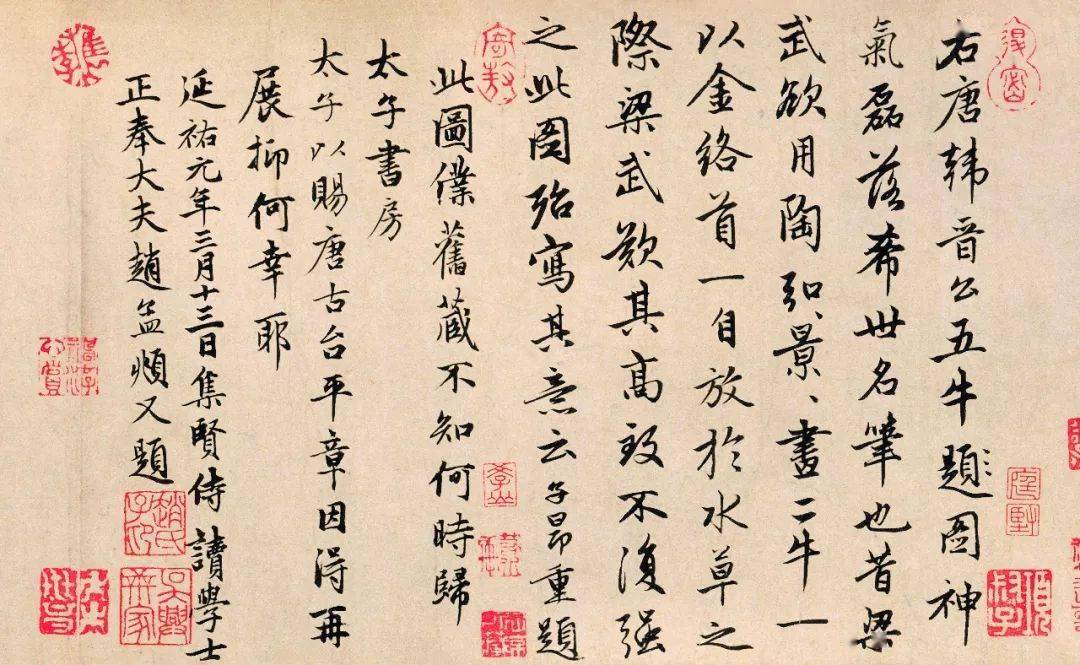 右唐韓晉公五牛題圖神
氣磊落希世名筆也昔梁
武欲用陶弘景、畫二牛一
以金絡首一自放於水草之
際梁武歎其高致不復强
之此圖殆寫其意云子昂重題
此圖僕舊藏不知何時歸
太子書房
太子以賜唐古台平章因得再
展抑何幸耶
延祐元年三月十三日集賢侍讀學士
正奉大夫趙孟頫又題
趙氏子昂